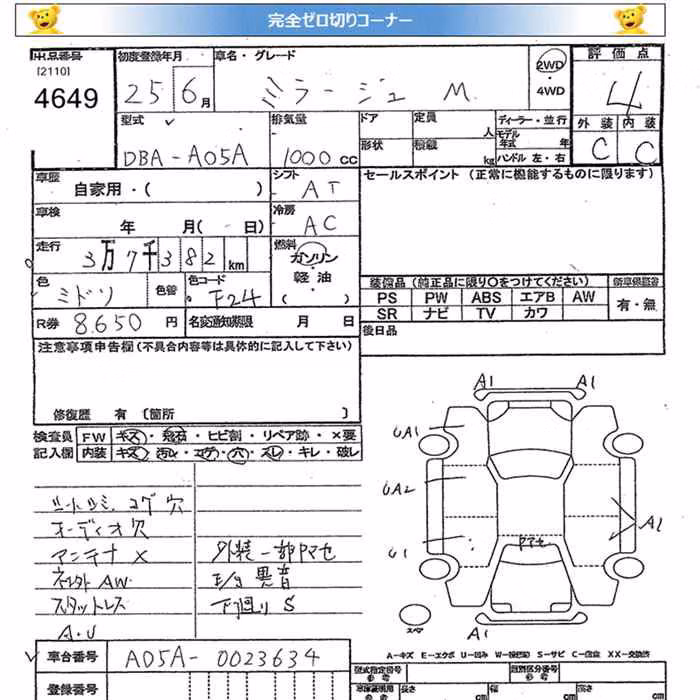 完全ゼロ切りコーナー
出品番号
[2110]
4649
初度登録年月
25 6月
車名・グレード
ミラージュ M
2WD
・
4WD
評価点
4
外装 内装
C C
型式
DBA-A05A
排気量
1000 cc
ドア 定員 人
形状 積載 kg
ディーラー・並行
モデル年式 年
ハンドル 左・右
車歴
自家用・( )
シフト
AT
セールスポイント (正常に機能するものに限ります)
車検
年 月( 日)
冷房
AC
走行
3万7千382km
燃料
ガソリン
軽油
( )
色
ミドリ
色替
色コード
F24
装備品 (純正品に限り○をつけてください)
PS PW ABS エアB AW
SR ナビ TV カワ
有・無
R券 8.650 円
名変通知期限 月 日
後日品
注意事項申告欄(不具合内容等は具体的に記入して下さい)
修復歴 有 〔箇所 〕
検査員
記入欄
FW キズ・飛石・ヒビ割・リペア跡・×要
内装 キズ・汚レ・コゲ・穴・スレ・キレ・破レ
コゲ穴
オーディオ欠
アンテナ X
AW
スタットレス
A.U
外装一部ヤマセ
E/g 異音
下廻り S
A1 A1
UA1
UA2
U1
A1
ヤマセ
A1
スペア
A-キズ E-エクボ U-凹み W-補修跡 S-サビ C-腐食 XX-交換済
車台番号
A05A-0023634
登録番号
型式指定番号
参考
類別区分番号
参考
長さ cm
幅 cm
高さ cm